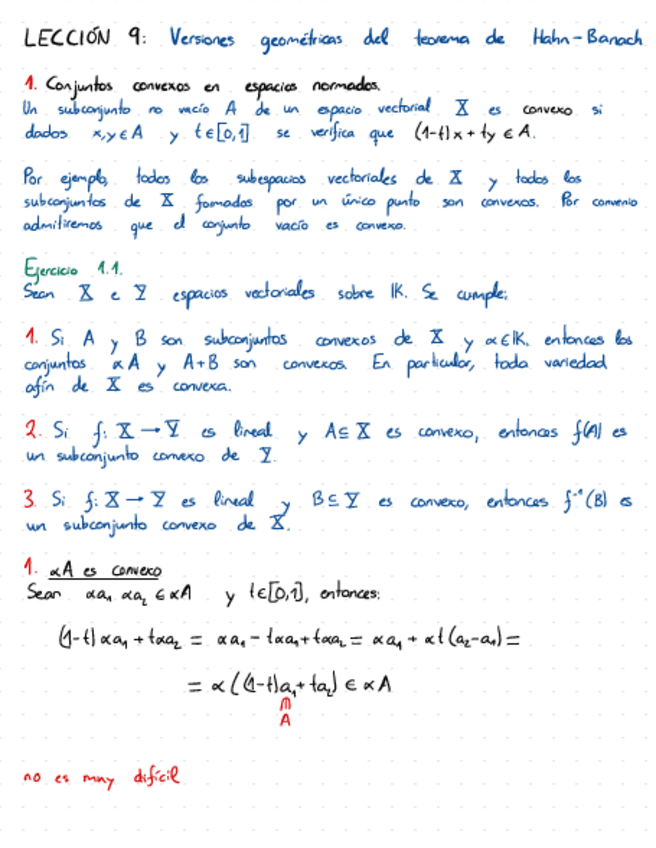 LECCIÓN 9: Versiones geométricas del teorema de Hahn-Banach
1. Conjuntos convexos en espacios normados.
Un subconjunto no vacío A de un espacio vectorial X es convexo si
dados x,y∈A y t∈[0,1] se verifica que (1-t)x + ty ∈ A.
Por ejemplo, todos los subespacios vectoriales de X y todos los
subconjuntos de X formados por un único punto son convexos. Por convenio
admitiremos que el conjunto vacío es convexo.
Ejercicio 1.1.
Sean X e Y espacios vectoriales sobre K. Se cumple:
1. Si A y B son subconjuntos convexos de X y α∈K, entonces los
conjuntos αA y A+B son convexos. En particular, toda variedad
afín de X es convexa.
2. Si f: X → Y es lineal y A⊆X es convexo, entonces f(A) es
un subconjunto convexo de Y.
3. Si f: X → Y es lineal y B⊆Y es convexo, entonces f⁻¹(B) es
un subconjunto convexo de X.
1. αA es convexo
Sean αa₁ αa₂ ∈ αA y t∈[0,1], entonces:
(1-t)αa₁ + tαa₂ = αa₁ - tαa₁ + tαa₂ = αa₁ + αt(a₂-a₁) =
= α((1-t)a₁ + ta₂) ∈ αA
∈
A
no es muy difícil